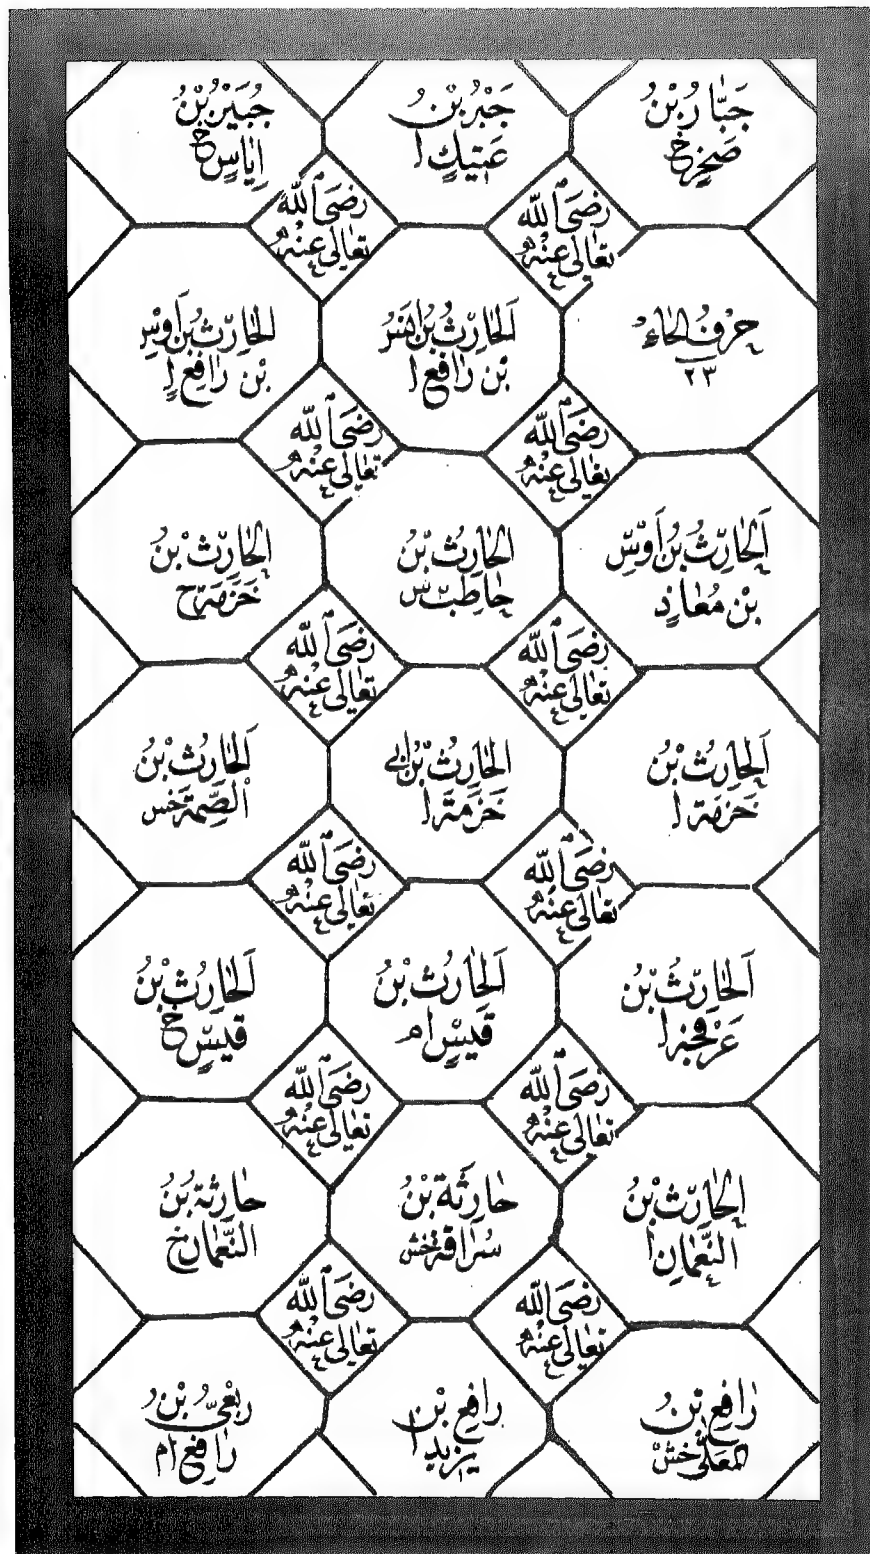 جَبَّارُ بْنُ
صَخْرٍ خ
جَبْرُ بْنُ
عَتِيكٍ ا
جُبَيْرُ بْنُ
اِيَاسٍ خ
رَضِىَ اللّٰه
تَعَالٰى عَنْهُ
رَضِىَ اللّٰه
تَعَالٰى عَنْهُ
حَرْفُ الْحَاءِ
٢٣
اَلْحَارِثُ بْنُ
بْنِ رَافِعٍ ا
اَلْحَارِثُ بْنُ اَوْسِ
بْنِ رَافِعٍ ا
رَضِىَ اللّٰه
تَعَالٰى عَنْهُ
رَضِىَ اللّٰه
تَعَالٰى عَنْهُ
اَلْحَارِثُ بْنُ اَوْسِ
بْنِ مُعَاذٍ
اَلْحَارِثُ بْنُ
حَاطِبٍ
اَلْحَارِثُ بْنُ
خَزَمَة
رَضِىَ اللّٰه
تَعَالٰى عَنْهُ
رَضِىَ اللّٰه
تَعَالٰى عَنْهُ
اَلْحَارِثُ بْنُ
خَزَمَة ا
اَلْحَارِثُ بْنُ اَبِى
خَزَمَة ا
اَلْحَارِثُ بْنُ
الصِّمَّة
رَضِىَ اللّٰه
تَعَالٰى عَنْهُ
رَضِىَ اللّٰه
تَعَالٰى عَنْهُ
اَلْحَارِثُ بْنُ
عَرْفَجَة ا
اَلْحَارِثُ بْنُ
قَيْسٍ ام
اَلْحَارِثُ بْنُ
قَيْسٍ خ
رَضِىَ اللّٰه
تَعَالٰى عَنْهُ
رَضِىَ اللّٰه
تَعَالٰى عَنْهُ
اَلْحَارِثُ بْنُ
النُّعْمَانِ ا
حَارِثَةُ بْنُ
سُرَاقَةَ خش
حَارِثَةُ بْنُ
النُّعْمَانِ خ
رَضِىَ اللّٰه
تَعَالٰى عَنْهُ
رَضِىَ اللّٰه
تَعَالٰى عَنْهُ
رَافِعُ بْنُ
الْمُعَلّٰى خش
رَافِعُ بْنُ
يَزِيدَ ا
رِبْعِىُّ بْنُ
رَافِعٍ ام